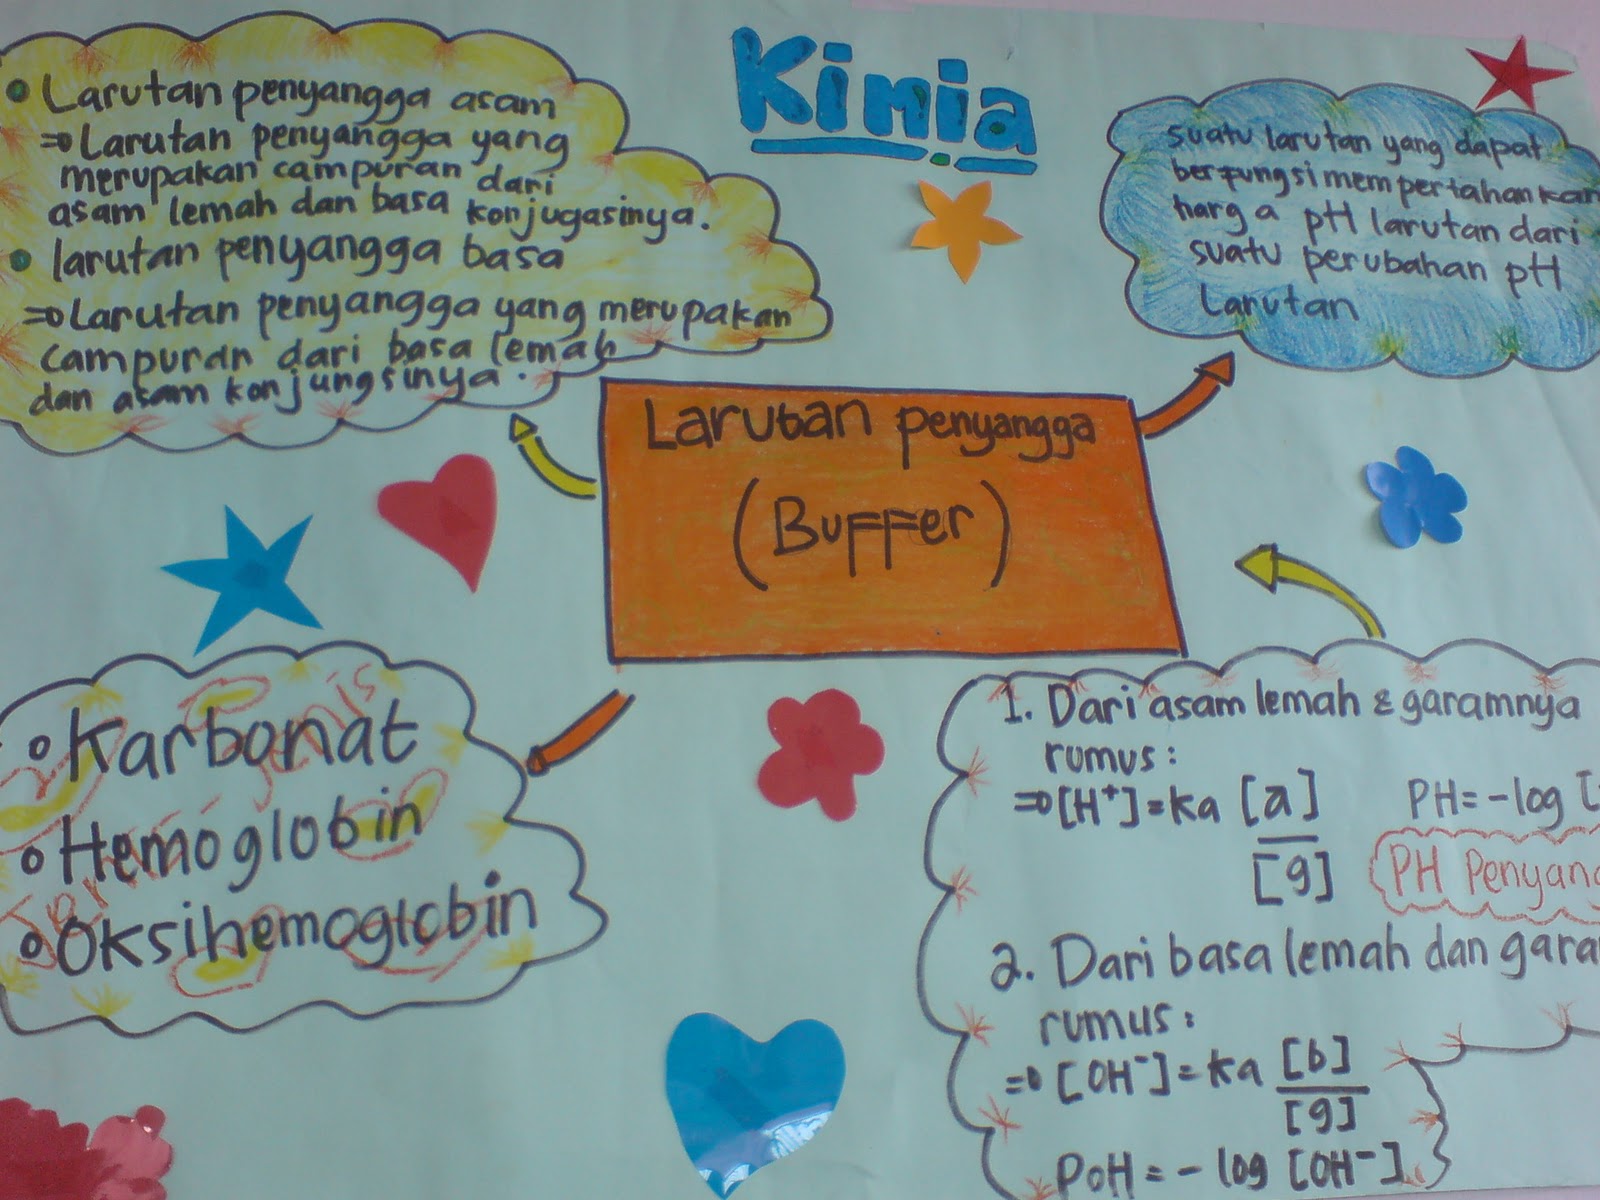 Kimia
• Larutan penyangga asam
⇒ Larutan penyangga yang
merupakan campuran dari
asam lemah dan basa konjugasinya.
• larutan penyangga basa
⇒ Larutan penyangga yang merupakan
campuran dari basa lemah
dan asam konjungsinya.
suatu larutan yang dapat
berfungsi mempertahankan
harga pH larutan dari
suatu perubahan pH
Larutan
Larutan penyangga
(Buffer)
Karbonat
Hemoglobin
Oksihemoglobin
1. Dari asam lemah & garamnya
rumus :
⇒ [H⁺] = ka [a]
[g]
PH = -log [
PH Penyang
2. Dari basa lemah dan gara
rumus :
⇒ [OH⁻] = ka [b]
[g]
POH = - log [OH⁻]